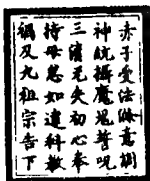 赤子受法意
神統攝魔鬼誓呪
三清无失初心奉
持毋怠如違科教
禍及九祖宗告下